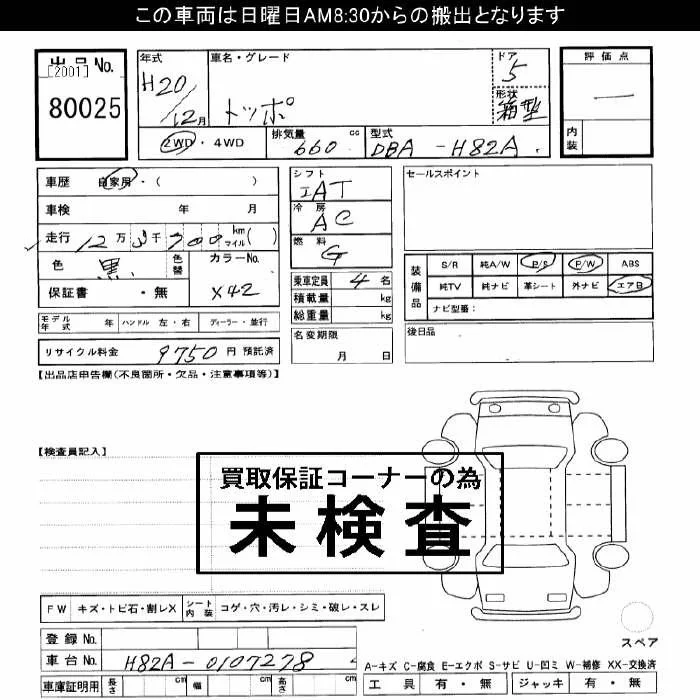 この車両は日曜日AM8:30からの搬出となります
出品No.
[2001]
80025
年式
H20/12月
車名・グレード
トッポ
ドア
5
形状
箱型
評価点
―
内装
2WD・4WD
排気量 660 cc
型式 DBA-H82A
車歴 自家用・( )
車検 年 月
走行 12万3千700 km マイル( )
色 黒
色替
カラーNo. X42
保証書 ・無
シフト
IAT
冷房
AC
燃料
G
乗車定員 4名
積載量 kg
総重量 kg
セールスポイント
装備品
S/R 純A/W P/S P/W ABS
純TV 純ナビ 革シート 外ナビ エアB
ナビ型番:
モデル年式 年 ハンドル 左・右 ディーラー・並行
リサイクル料金 9750円 預託済
名変期限
月 日
後日品
【出品店申告欄(不良箇所・欠品・注意事項等)】
【検査員記入】
買取保証コーナーの為
未検査
FW キズ・トビ石・割レX シート内装 コゲ・穴・汚レ・シミ・破レ・スレ
登録No.
車台No. H82A-0107278
車庫証明用 長さ cm 幅 cm 高さ cm
スペア
A-キズ C-腐食 E-エクボ S-サビ U-凹ミ W-補修 XX-交換済
工具 有・無 ジャッキ 有・無